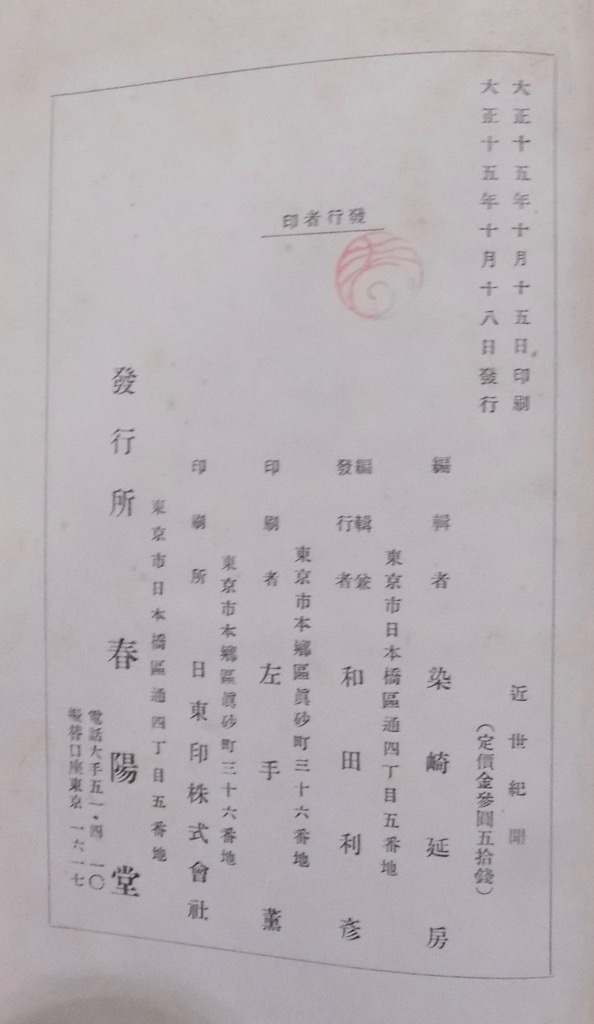 大正十五年十月十五日印刷
大正十五年十月十八日發行
近世紀聞
(定價金參圓五拾錢)
發行者印
編輯者 染崎延房
東京市日本橋區通四丁目五番地
編輯兼
發行者 和田利彥
東京市本鄕區眞砂町三十六番地
印刷者 左手薰
東京市本鄕區眞砂町三十六番地
印刷所 日東印株式會社
東京市日本橋區通四丁目五番地
發行所 春陽堂
電話大手五一・四一〇
振替口座東京一六一七